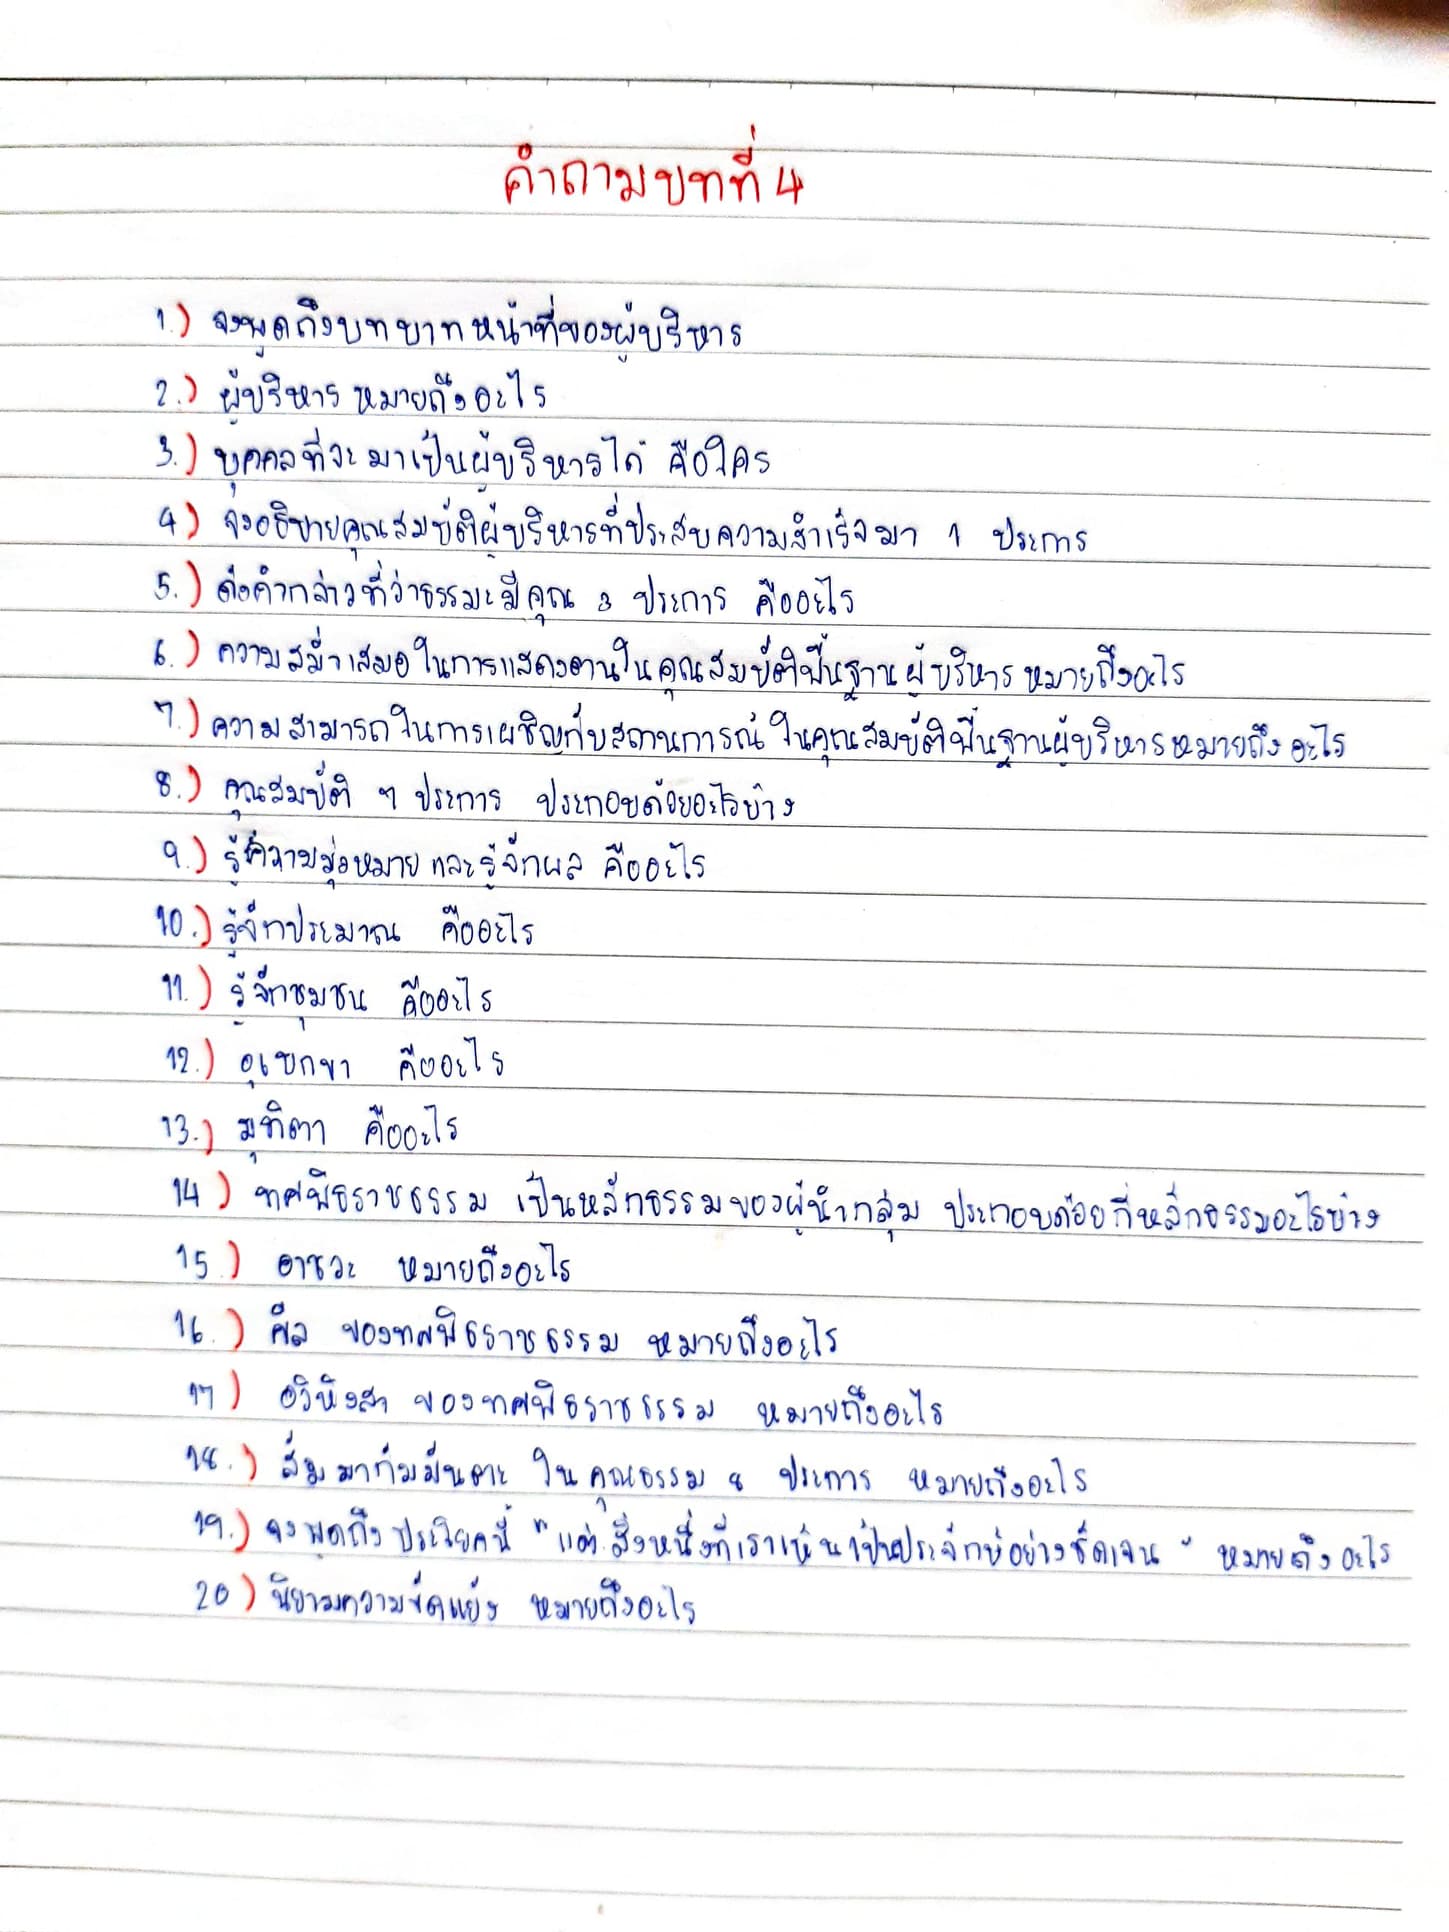 คำถามบทที่ 4
1.) จงพูดถึงบทบาทหน้าที่ของผู้บริหาร
2.) ผู้บริหาร หมายถึงอะไร
3.) บุคคลที่จะมาเป็นผู้บริหารได้ คือใคร
4.) จงอธิบายคุณสมบัติผู้บริหารที่ประสบความสำเร็จมา 1 ประการ
5.) ดังคำกล่าวที่ว่าธรรมะมีคุณ 3 ประการ คืออะไร
6.) ความสม่ำเสมอในการแสดงตานในคุณสมบัติพื้นฐานผู้บริหาร หมายถึงอะไร
7.) ความสามารถในการเผชิญกับสถานการณ์ ในคุณสมบัติพื้นฐานผู้บริหารหมายถึง อะไร
8.) คุณสมบัติ ๗ ประการ ประกอบด้วยอะไรบ้าง
9.) รู้ความมุ่งหมาย และรู้จักผล คืออะไร
10.) รู้จักประมาณ คืออะไร
11.) รู้จักชุมชน คืออะไร
12.) อุเบกขา คืออะไร
13.) มุทิตา คืออะไร
14.) ทศพิธราชธรรม เป็นหลักธรรมของผู้นำกลุ่ม ประกอบด้วยกี่หลักธรรมอะไรบ้าง
15.) อาชวะ หมายถึงอะไร
16.) ศีล ของทศพิธราชธรรม หมายถึงอะไร
17.) อวิหิงสา ของทศพิธราชธรรม หมายถึงอะไร
18.) สัมมากัมมันตะ ในคุณธรรม ๘ ประการ หมายถึงอะไร
19.) จงพูดถึงประโยคนี้ "แต่ สิ่งหนึ่งที่เราเห็นเป็นประจักษ์อย่างชัดเจน" หมายถึง อะไร
20.) นิยามความขัดแย้ง หมายถึงอะไร